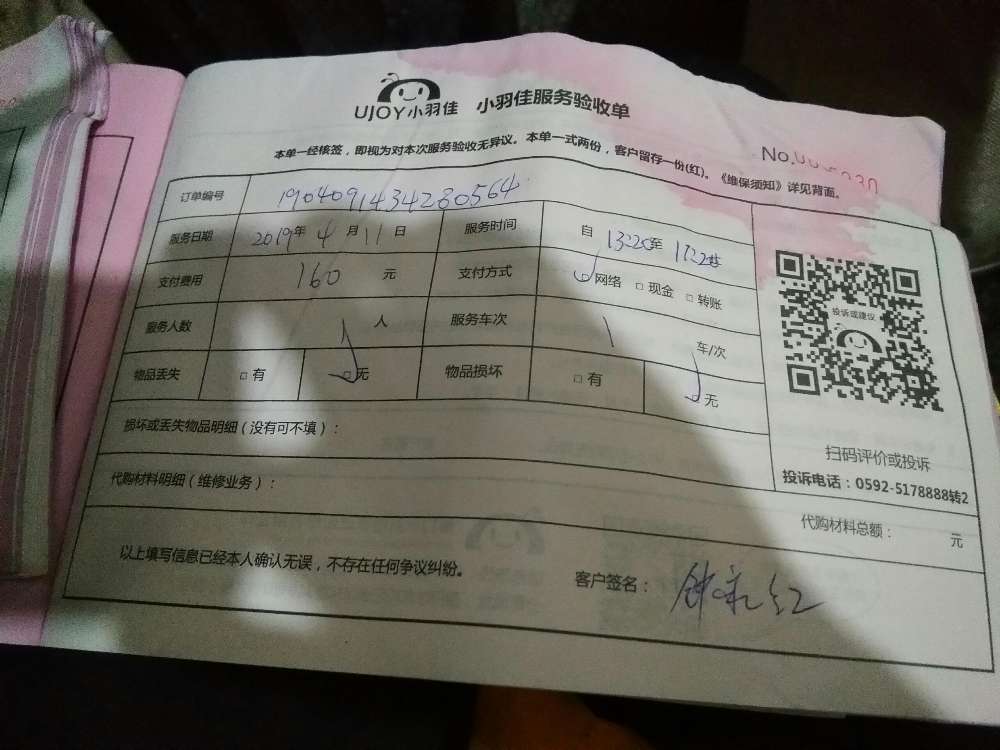 UJOY小羽佳 小羽佳服务验收单
本单一经核签，即视为对本次服务验收无异议。本单一式两份，客户留存一份(红)。《维保须知》详见背面。
No.
订单编号 1904091434280564
服务日期 2019年 4 月 11 日 服务时间 自 13:20至
支付费用 160 元 支付方式 网络 □ 现金 □ 转账
服务人数 1 人 服务车次 1 车/次
物品丢失 □ 有 □ 无 物品损坏 □ 有 无
损坏或丢失物品明细（没有可不填）：
代购材料明细（维修业务）：
投诉或建议
扫码评价或投诉
投诉电话：0592-5178888转2
代购材料总额： 元
以上填写信息已经本人确认无误，不存在任何争议纠纷。
客户签名： 钟 红